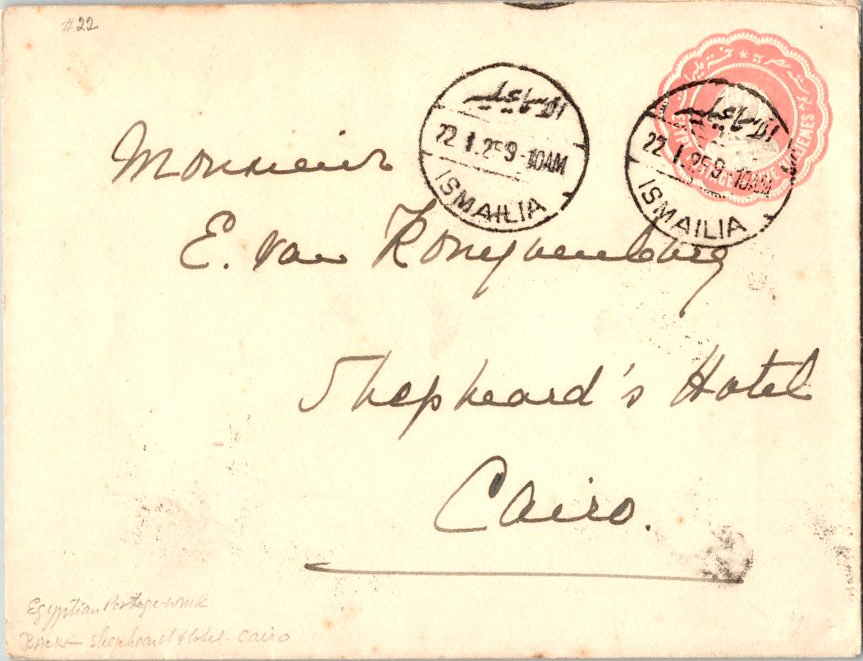 #22
الاسماعيلية
22.1.25 9-10AM
ISMAILIA
الاسماعيلية
22.1.25 9-10AM
ISMAILIA
Monsieur
E. van
Shepheard's Hotel
Cairo.
Egyptian Postage-
Back - Shepheard Hotel - Cairo